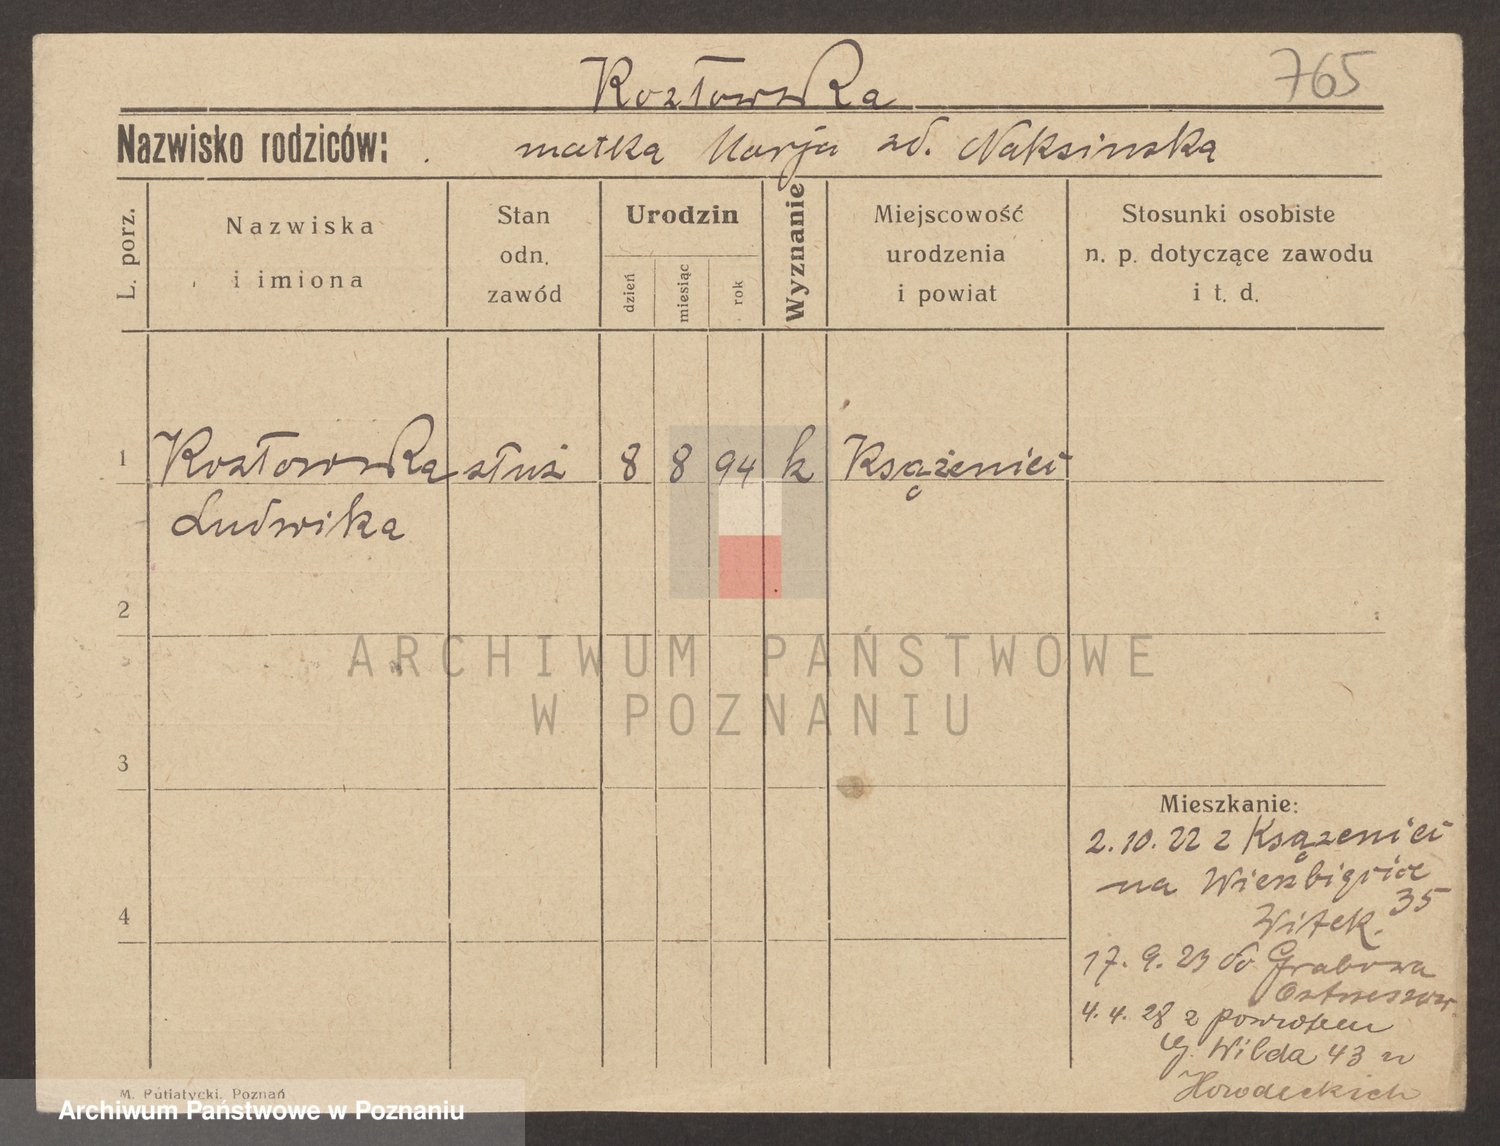 Kozłowska
765
Nazwisko rodziców: matka Marja zd. Naksinska
L. porz.
Nazwiska
i imiona
Stan
odn.
zawód
Urodzin
dzień
miesiąc
rok
Wyznanie
Miejscowość
urodzenia
i powiat
Stosunki osobiste
n. p. dotyczące zawodu
i t. d.
1 Kozłowska służ 8 8 94 k Książenici
Ludwika
2
ARCHIWUM PAŃSTWOWE
W POZNANIU
3
4
Mieszkanie:
2.10.22 z Książenici
na
35
Witek.
17.9.23 do Grabowa
4.4.28 z powrotem
G. Wilda 43 u
M. Putiatycki, Poznań
Archiwum Państwowe w Poznaniu